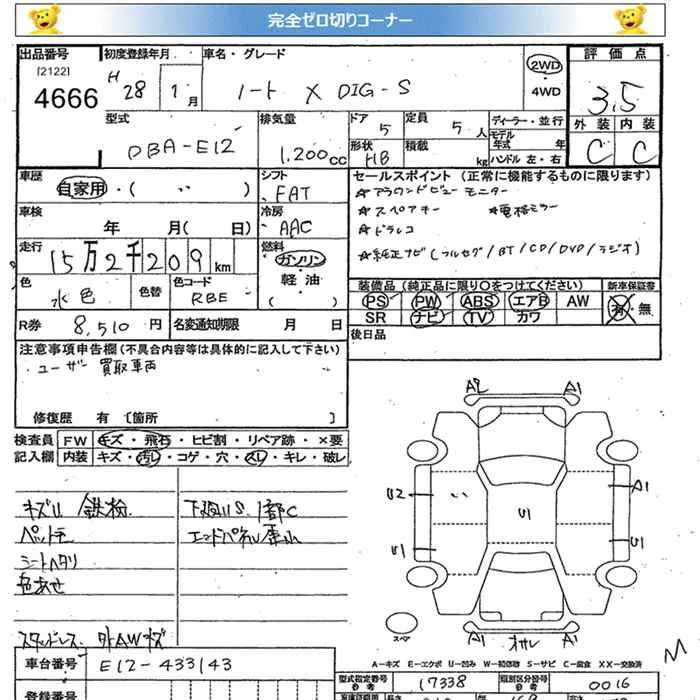 完全ゼロ切りコーナー
出品番号 初度登録年月 車名・グレード 評価点
[2122] 4666 H 28 1月 ノート X DIG-S 2WD ・ 4WD 3.5
型式 排気量 ドア 5 定員 5人 ディーラー・並行 外装 内装
DBA-E12 1,200cc 形状 HB 積載 kg モデル年式 年 ハンドル 左・右 C C
車歴 シフト セールスポイント(正常に機能するものに限ります)
自家用・( 〃 ) FAT ☆アラウンドビューモニター
車検 冷房 ☆スペアキー ☆電格ミラー
年 月(日) AAC ☆ドラレコ
走行 燃料 ☆純正ナビ(フルセグ/BT/CD/DVD/ラジオ)
15万2千209km ガソリン
色 色替 色コード 軽油 装備品(純正品に限り○をつけてください) 新車保証書
水色 RBE ( ) PS PW ABS エアB AW 有・無
R券 8,510円 名変通知期限 月 日 SR ナビ TV カワ
注意事項申告欄(不具合内容等は具体的に記入して下さい) 後日品
ユーザー買取車両
修復歴 有 〔箇所 〕
検査員 FW キズ・飛石・ヒビ割・リペア跡・×要
記入欄 内装 キズ・汚レ・コゲ・穴・スレ・キレ・破レ
A2 A1
U2 〃 A1
キズU 鉄粉 下廻りS.1部C U1
ペットモ エンドパネル歪山 U1 U1
シートヘタリ
色あせ
スペア A1 オサレ A1
スタッドレス 外AWキズ
A-キズ E-エクボ U-凹み W-補修跡 S-サビ C-腐食 XX-交換済
M
車台番号 E12-433143 型式指定番号 参考 17338 類別区分番号 参考 0016
登録番号